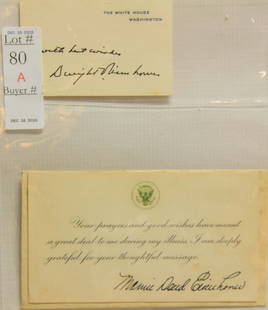 DEC 28 2020
Lot #
80
A
Buyer #
DEC 28 2020
THE WHITE HOUSE
WASHINGTON
with best wishes
Dwight D Eisenhower
Your prayers and good wishes have meant
a great deal to me during my illness. I am deeply
grateful for your thoughtful message.
Mamie Doud Eisenhower